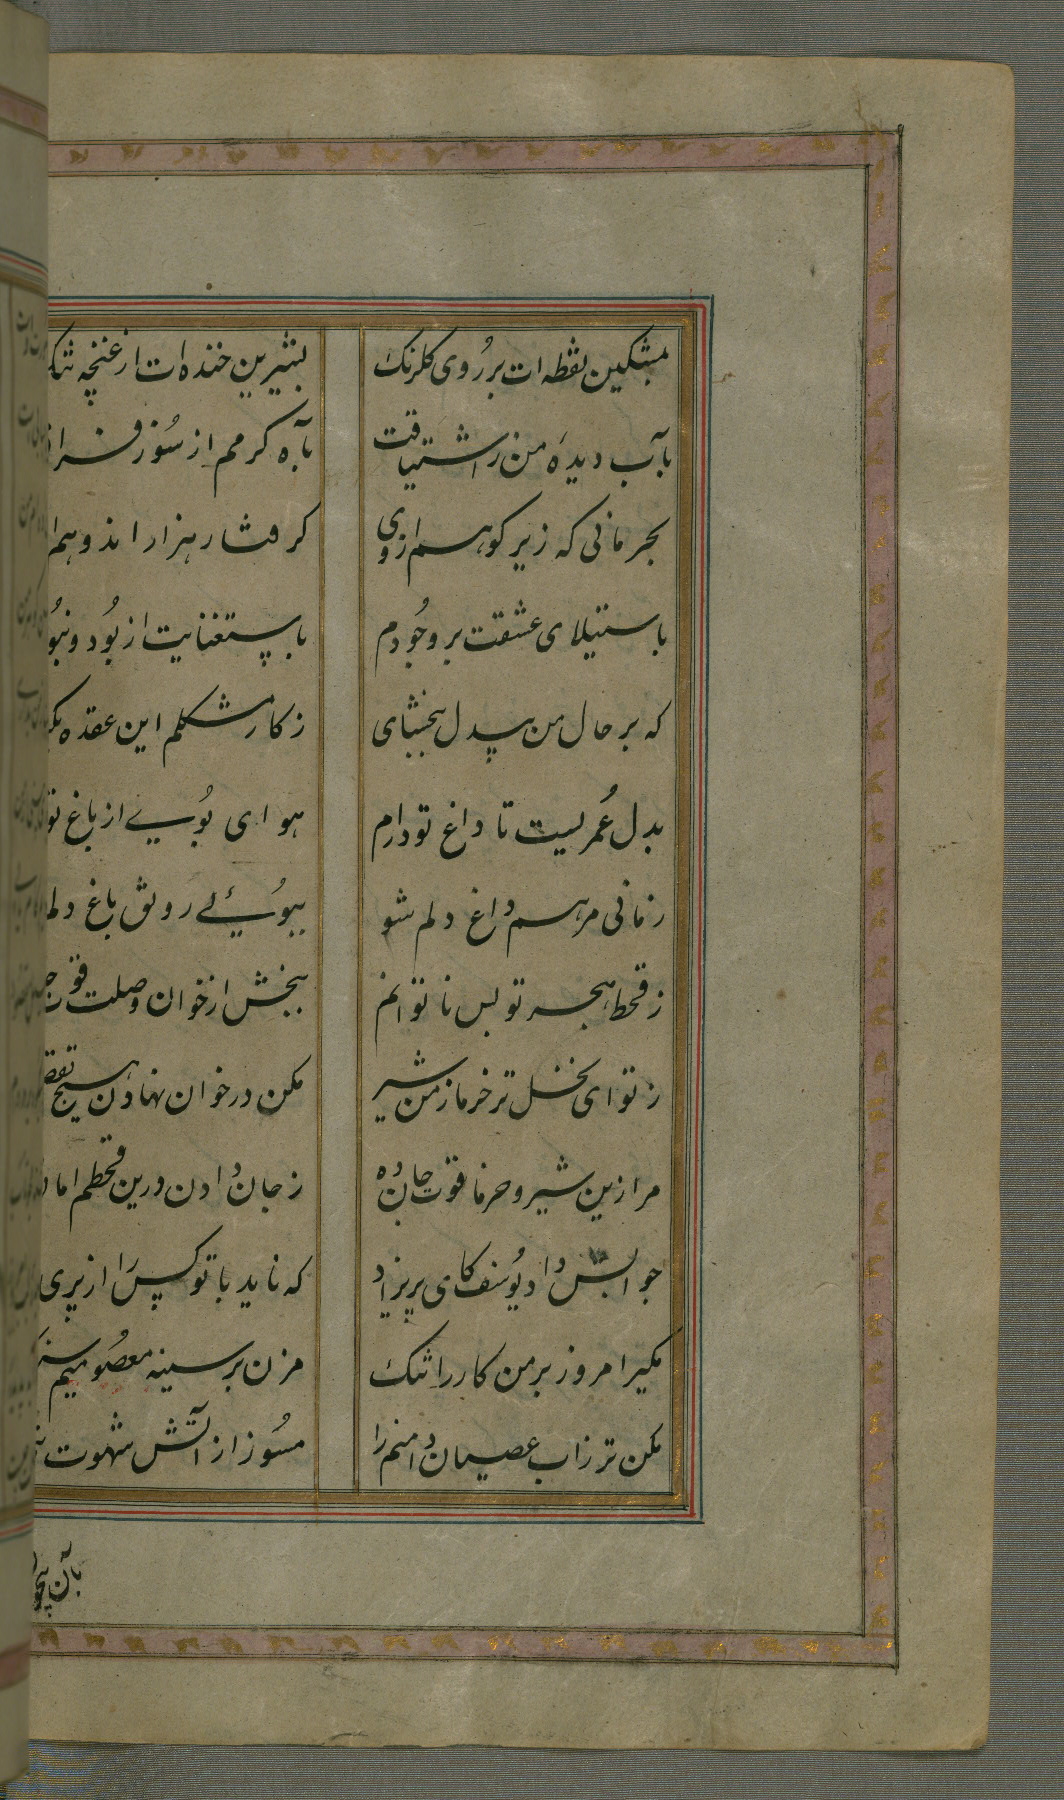 بمشکین نقطه ات بر روی کلرنک بشیرین خنده ات از غنچه
بآب دیده من ز اشتیاقت بآه کرمم از سوز
بحرمانی که زیر کوهم از وی کرفتار هزار اندوهم
باستیلای عشقت بر وجودم باستغنایت از بود و
که بر حال من بیدل ببخشای ز کار مشکلم این عقده
بدل عمریست تا داغ تو دارم هوای بویے از باغ
زمانی مرهم داغ دلم شو ببوئے رونق باغ
ز قحط هجر تو بس ناتوانم ببخش از خوان وصلت قوت
ز تو ای نخل تر خرما ز من شیر مکن در خوان نهادن هیچ
مرا زین شیر و خرما قوت جان ده ز جان دادن درین قحطم
جوابش داد یوسف کای پریزاد که ناید با تو کس را از پری
مکیر امروز بر من کار را تنک مزن بر سینه معصومیم
مکن تر ز اب عصیان دامنم را مسوز از آتش شهوت
بآن